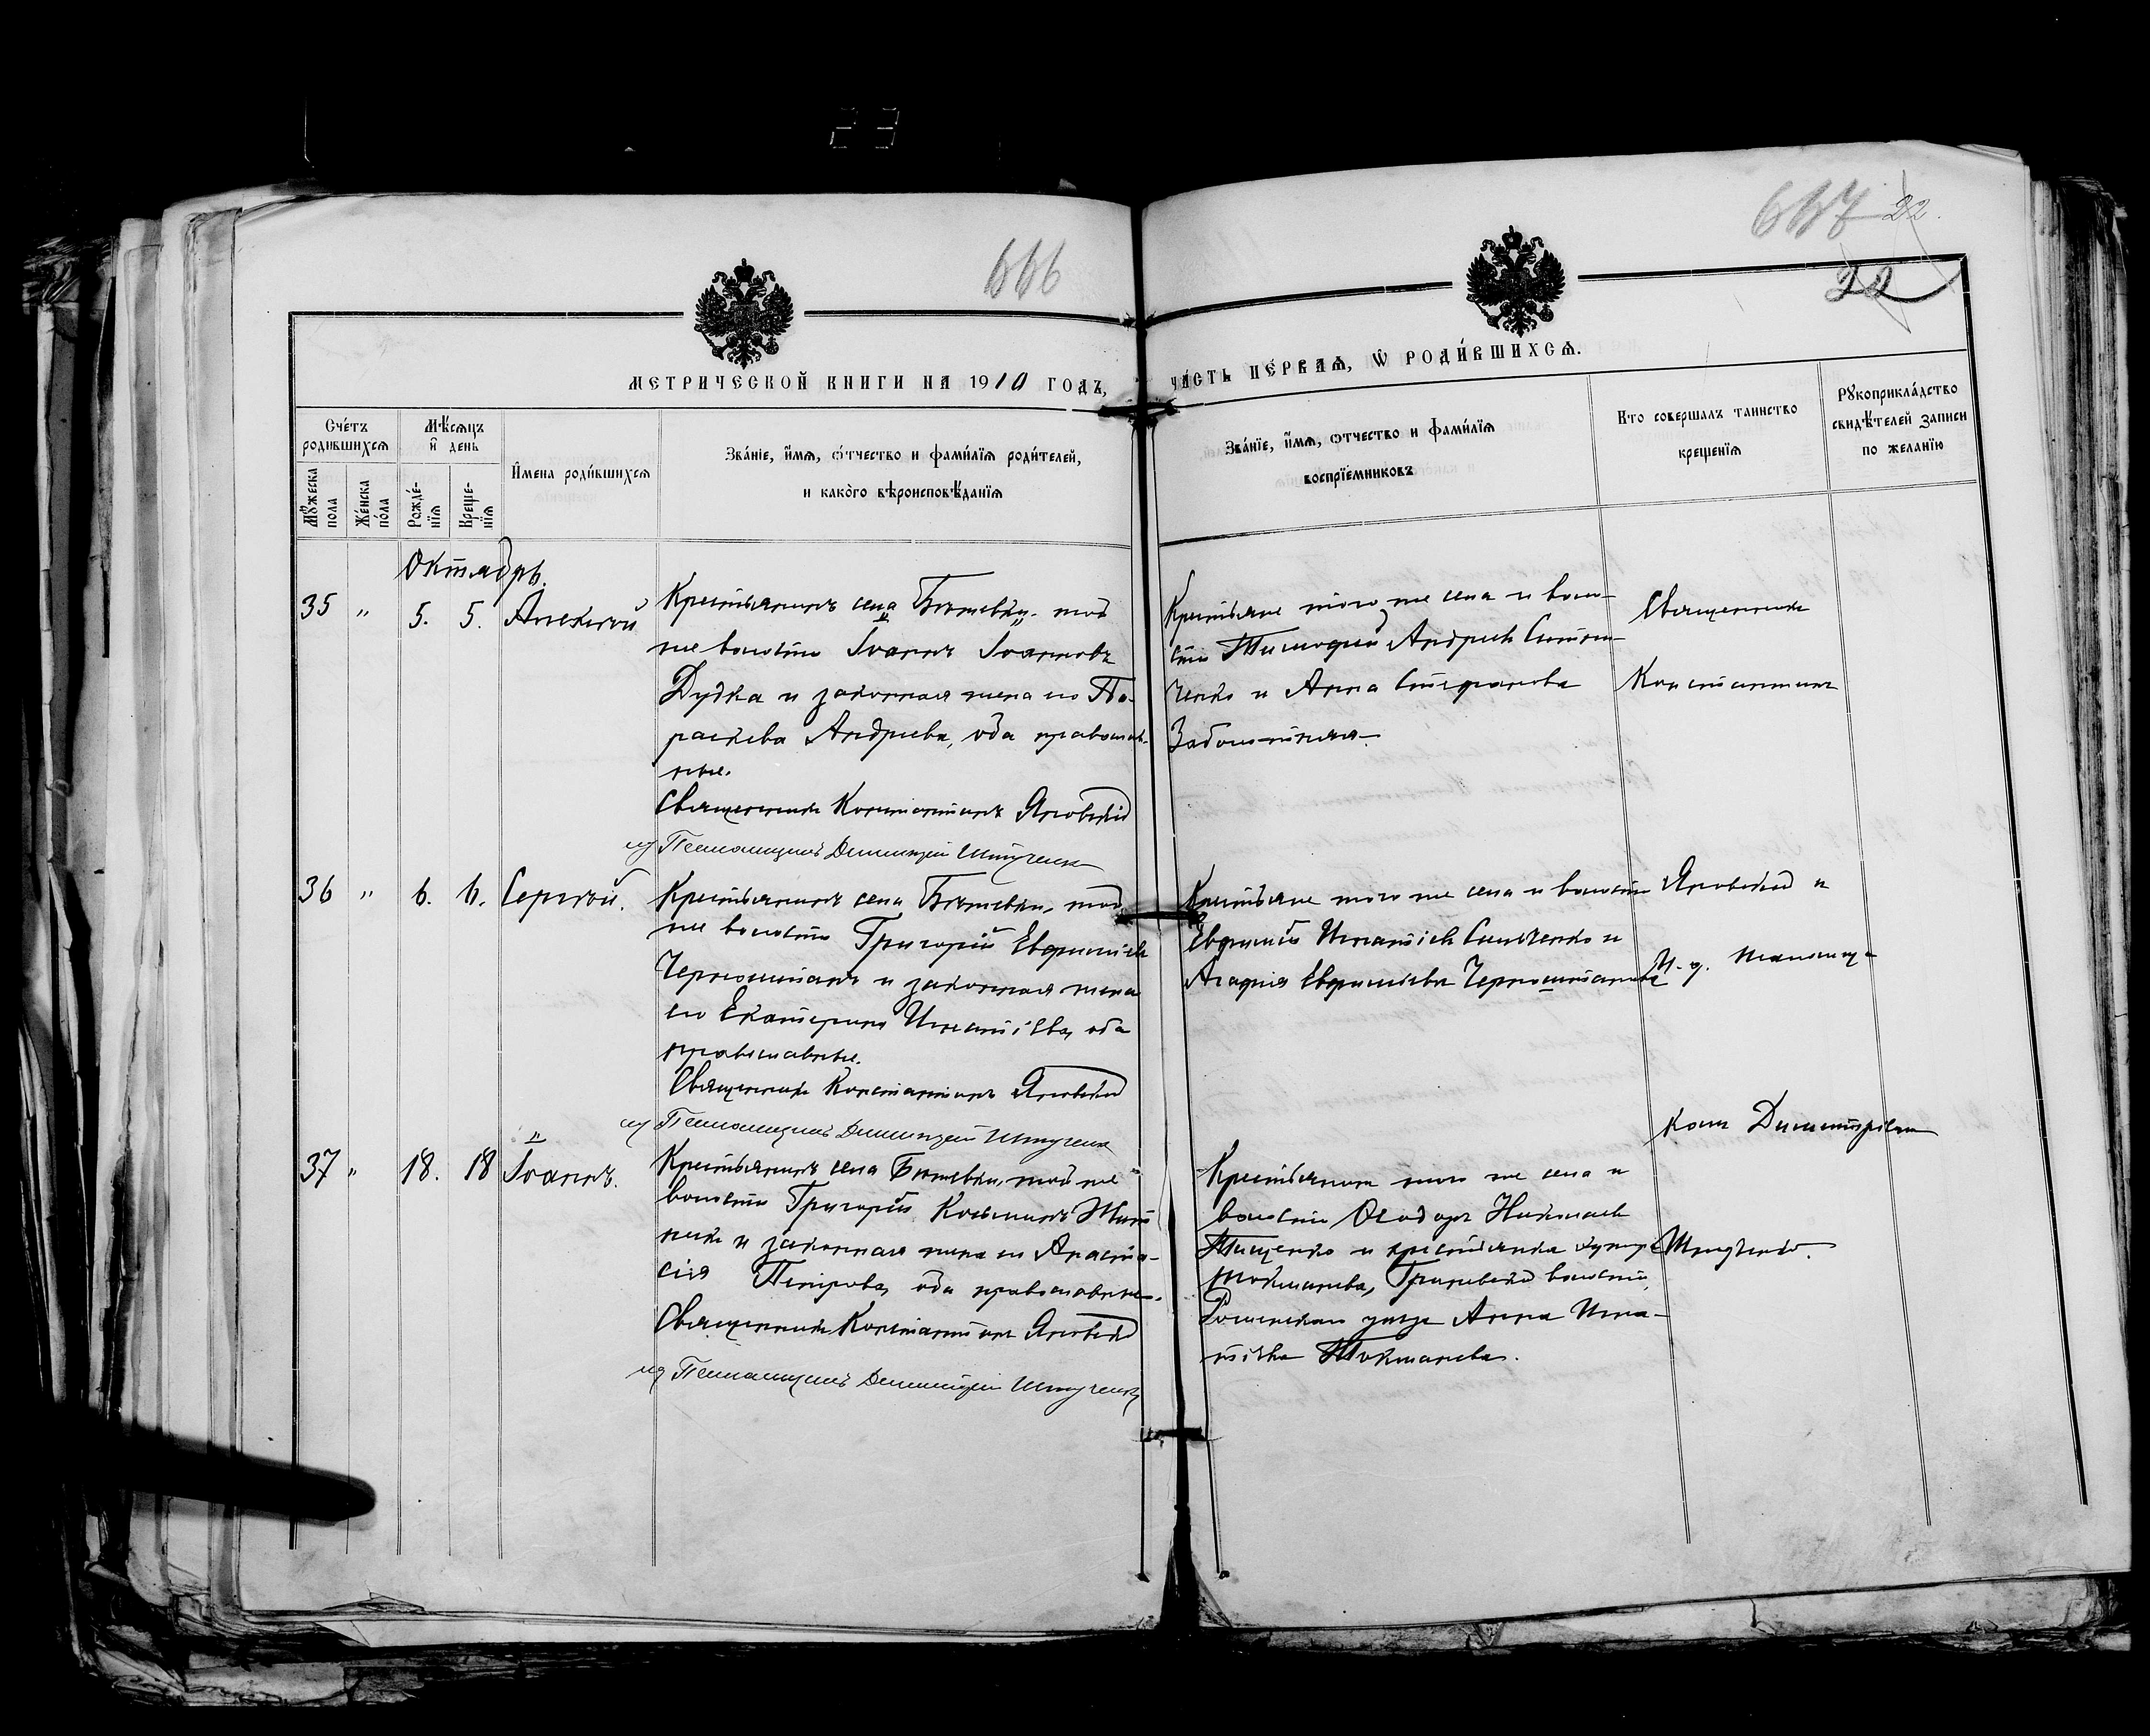 23
666
667 22.
22
МЕТРИЧЕСКОЙ КНИГИ НА 1910 ГОДЪ,
ЧА́СТЬ ПЕ́РВАЯ, Ѡ РОДИ́ВШИХСЯ.
Сче́тъ родившихся
Мѣсяцъ и день
Мꙋжеска пола
Же́нска по́ла
Рожде́нїя
Креще́нїя
Имена роди́вшихся
Зва́нїе, и́мя, ѻ́тчество и фами́лїя роди́телей,
и како́го вѣроисповѣ́данїя
Зва́нїе, и́мя, ѻтчество и фами́лїя
воспрїе́мниковъ
Кто совершалъ таинство
крещенїя
Рꙋкоприкла́дство
свидѣ́телей записи
по желанїю
Октябрь.
35 " 5. 5. Алексѣй
Крестьянинъ села Бѣжевки, той
же волости Іоаннъ Іоанновъ
Дудка и законная жена его Па-
раскева Андреева, оба православ-
ные.
Священникъ Константинъ Яновскій
ид Псаломщикъ Димитрій Штученко
Крестьяне того же села и воло-
сти Тимофей Андреевъ
и Анна Стефанова
Священникъ
Константинъ
36 " 6. 6. Сергѣй.
Крестьянинъ села Бѣжевки, той
же волости Григорій Евфиміевъ
Черноштанъ и законная жена
его Екатерина Игнатіева, оба
православные.
Священникъ Константинъ Яновскій
ид Псаломщикъ Димитрій Штученко
Крестьяне того же села и волости
Евфимій Игнатіевъ Симченко и
Агафія Евфиміева Черноштанова
Яновскій и
И. д. псаломщи-
комъ Димитріемъ
37 " 18. 18 Іоаннъ.
Крестьянинъ села Бѣжевки, той же
волости Григорій Косьминъ
и законная жена его Анаста-
сія Петрова, оба православные.
Священникъ Константинъ Яновскій
ид Псаломщикъ Димитрій Штученко
Крестьянинъ того же села и
волости Ѳеодоръ Николаевъ
Тищенко и крестьянка хутора
волости,
Роменскаго уѣзда Анна Игна-
тіева